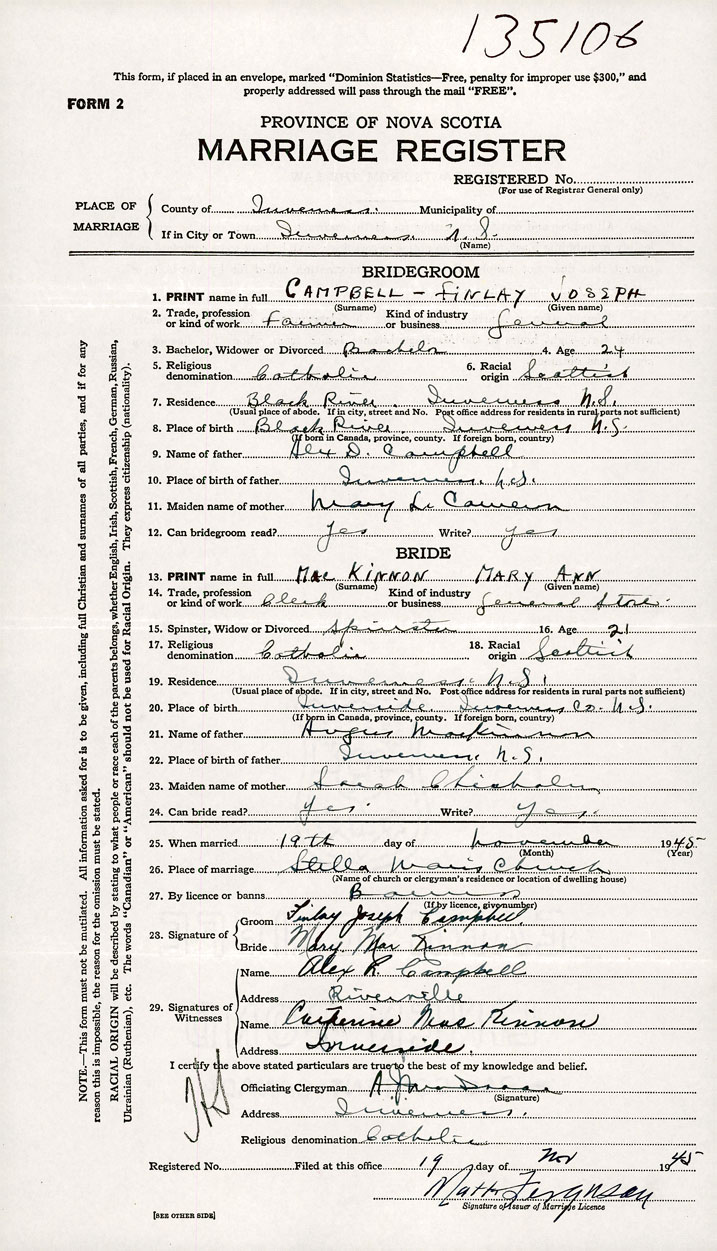 135106
This form, if placed in an envelope, marked "Dominion Statistics—Free, penalty for improper use $300," and
properly addressed will pass through the mail "FREE".
FORM 2
PROVINCE OF NOVA SCOTIA
MARRIAGE REGISTER
REGISTERED No.
(For use of Registrar General only)
PLACE OF MARRIAGE
County of Inverness. Municipality of
If in City or Town Inverness. N.S.
(Name)
BRIDEGROOM
1. PRINT name in full CAMPBELL - FINLAY JOSEPH
(Surname) (Given name)
2. Trade, profession or kind of work Farmer Kind of industry or business General
3. Bachelor, Widower or Divorced Bachelor 4. Age 24
5. Religious denomination Catholic 6. Racial origin Scottish
7. Residence Black River. Inverness N.S.
(Usual place of abode. If in city, street and No. Post office address for residents in rural parts not sufficient)
8. Place of birth Black River. Inverness N.S.
(If born in Canada, province, county. If foreign born, country)
9. Name of father Alex D. Campbell
10. Place of birth of father Inverness. N.S.
11. Maiden name of mother Mary Cameron
12. Can bridegroom read? Yes Write? yes
BRIDE
13. PRINT name in full MacKINNON MARY ANN
(Surname) (Given name)
14. Trade, profession or kind of work Clerk Kind of industry or business General Store.
15. Spinster, Widow or Divorced Spinster 16. Age 21
17. Religious denomination Catholic 18. Racial origin Scottish
19. Residence Inverness. N.S.
(Usual place of abode. If in city, street and No. Post office address for residents in rural parts not sufficient)
20. Place of birth Inverside Inverness Co. N.S.
(If born in Canada, province, county. If foreign born, country)
21. Name of father Angus MacKinnon
22. Place of birth of father Inverness. N.S.
23. Maiden name of mother Sarah Chisholm
24. Can bride read? Yes. Write? Yes.
25. When married 19th day of November 1945
(Month) (Year)
26. Place of marriage Stella Maris Church
(Name of church or clergyman's residence or location of dwelling house)
27. By licence or banns Banns
(If by licence, give number)
28. Signature of
Groom Finlay Joseph Campbell
Bride Mary MacKinnon
29. Signatures of Witnesses
Name Alex R. Campbell
Address Riverville
Name Catherine MacKinnon
Address Inverside.
I certify the above stated particulars are true to the best of my knowledge and belief.
Officiating Clergyman
(Signature)
Address Inverness.
Religious denomination Catholic
Registered No. Filed at this office 19 day of Nov 1945
Matt Ferguson
Signature of Issuer of Marriage Licence
[SEE OTHER SIDE]
NOTE.—This form must not be mutilated. All information asked for is to be given, including full Christian and surnames of all parties, and if for any
reason this is impossible, the reason for the omission must be stated.
RACIAL ORIGIN will be described by stating to what people or race each of the parents belongs, whether English, Irish, Scottish, French, German, Russian,
Ukrainian (Ruthenian), etc. The words "Canadian" or "American" should not be used for Racial Origin. They express citizenship (nationality).